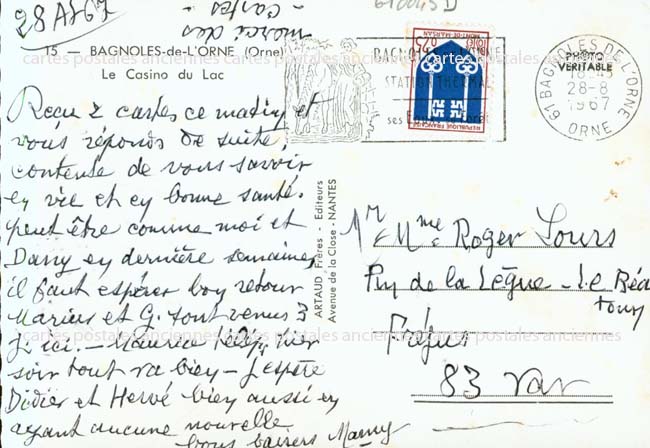 28 A 67
merci des
cartes.
610045D
15 - BAGNOLES-de-L'ORNE (Orne)
Le Casino du Lac
Reçu 2 cartes ce matin et
vous réponds de suite,
contente de vous savoir
en vie et en bonne santé.
peut être comme moi et
Dany en dernière semaine,
il faut espérer bon retour
Marius et G. sont venus 3
j. ici. - Maurice hier
soir tout va bien - J'espère
Didier et Hervé bien aussi en
ayant aucune nouvelle
bons baisers Mamy
ARTAUD Frères - Editeurs
Avenue de la Close - NANTES
STATION THERMALE
RÉPUBLIQUE FRANÇAISE
MONT-DE-MARSAN
0,25
PHOTO
VÉRITABLE
61 BAGNOLES DE L'ORNE
18-45
28-8
1967
ORNE
Mr & Mme Roger Lours
de la Lègue - Le Béa
tour
Fréjus
83 Var
cartes postales anciennes cartes postales anciennes cartes postales anciennes
cartes postales anciennes cartes postales anciennes cartes postales anciennes